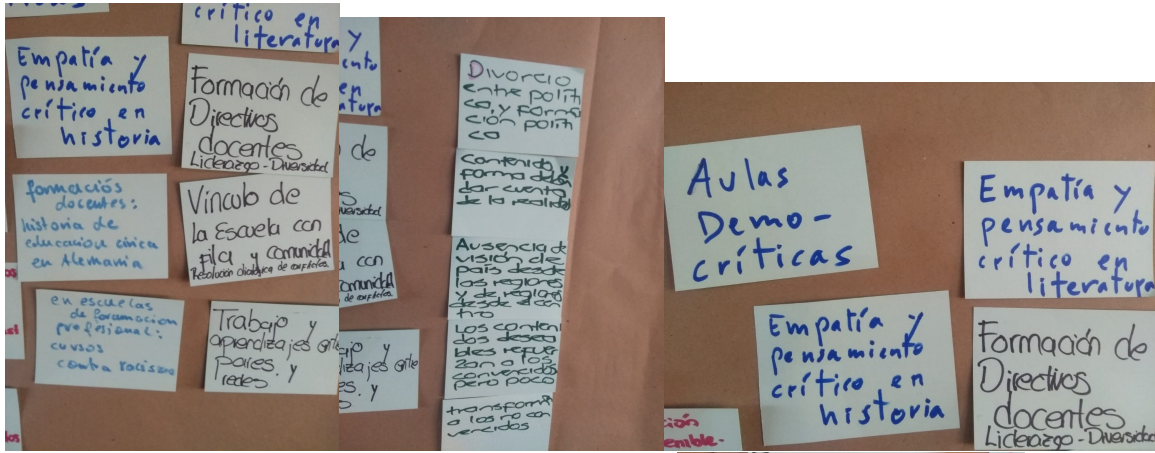 crítico en
literatura
Empatía y
pensamiento
crítico en
historia
Formación de
Directivos
docentes
Liderazgo - Diversidad
formaciós
docentes:
historia de
educacion cívica
en Alemania
Vinculo de
la Escuela con
flia y comunidad
Resolución dialógica de conflictos.
en escuelas
de foramacion
profesional:
cursos
contra racismo
Trabajo y
aprendizajes entre
pares. y
redes
Divorcio
entre políti
ca, y forma
ción políti
ca
Contenido y
forma deben
dar cuenta
de la realidad
Ausencia de
visión de
país desde
las regiones
y de región
desde el cen
tro
Los conteni
dos desea
bles refuer
zan a los
convencidos
pero poco
transforman
a los no con
vencidos
Aulas
Demo-
críticas
Empatía y
pensamiento
crítico en
literatura
Empatía y
pensamiento
crítico en
historia
Formación de
Directivos
docentes
Liderazgo - Diversidad